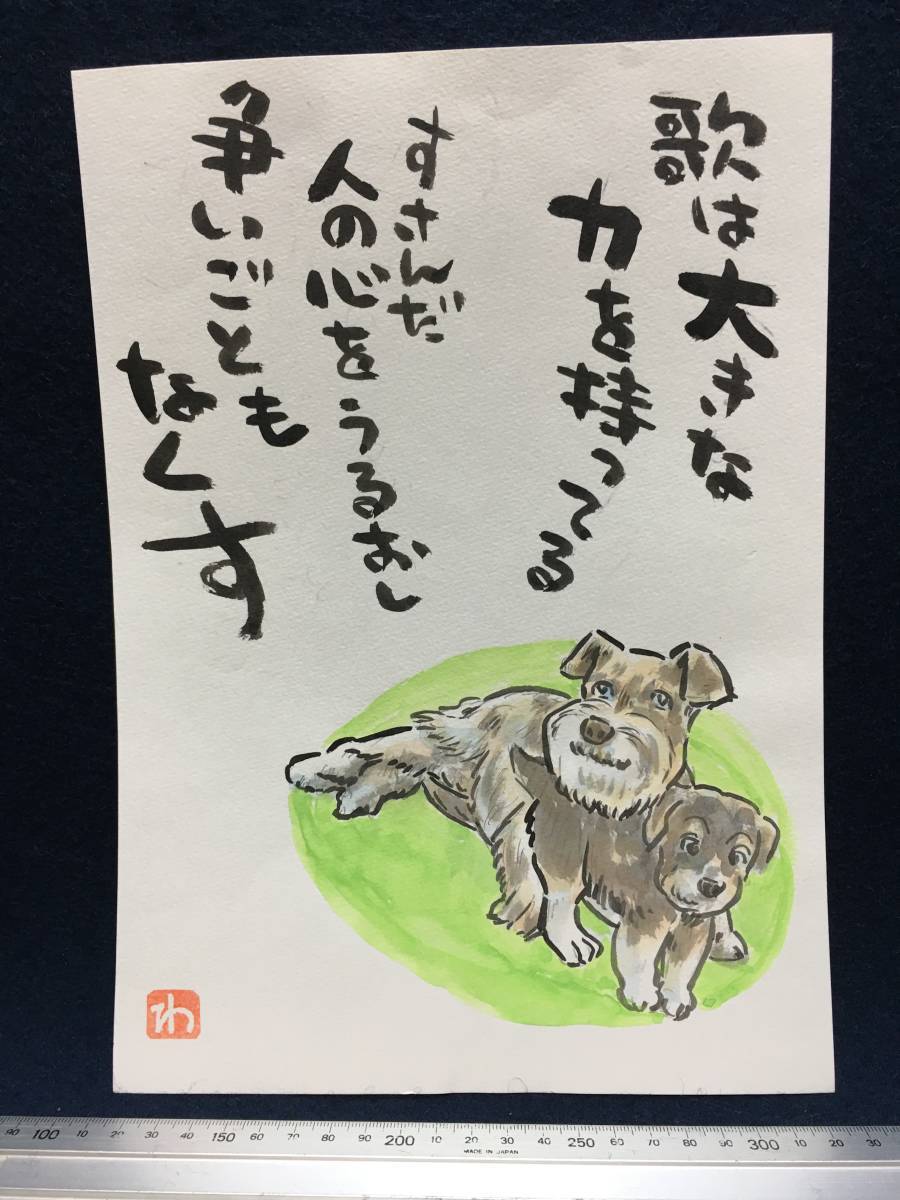 歌は大きな
力を持ってる
すさんだ
人の心をうるおし
争いごとも
なくす
わ
90 100 10 20 30 40 150 60 70 80 90 200 10 20 30 40 250 60 70 80 90 300 10 20 30
MADE IN JAPAN